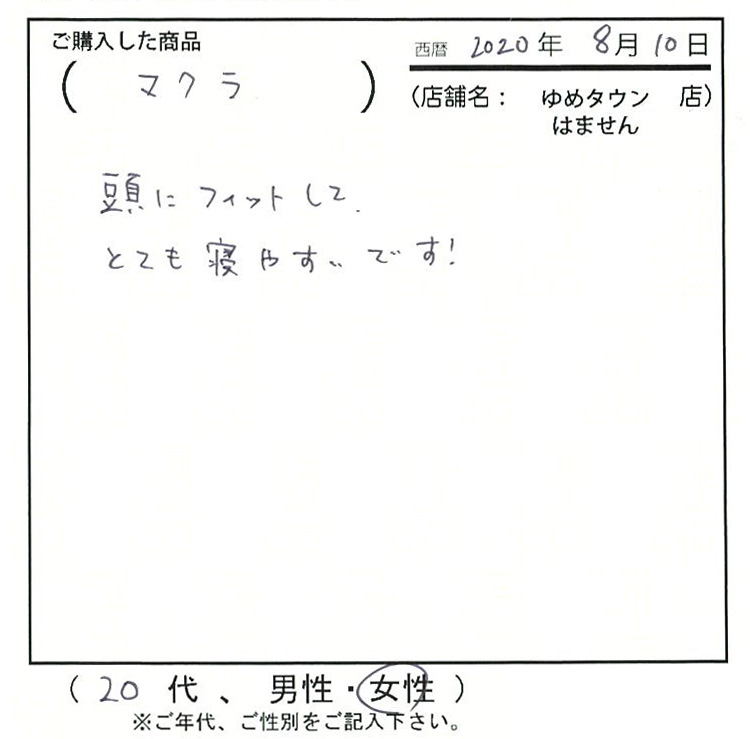 ご購入した商品
(マクラ)
西暦 2020年 8月10日
(店舗名: ゆめタウン 店)
はません
頭にフィットして、
とても寝やすいです!
(20代、男性・女性)
※ご年代、ご性別をご記入下さい。